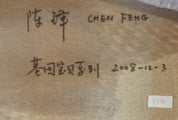 陈锋 CHEN FENG
基因宝贝系列 2008-12-3